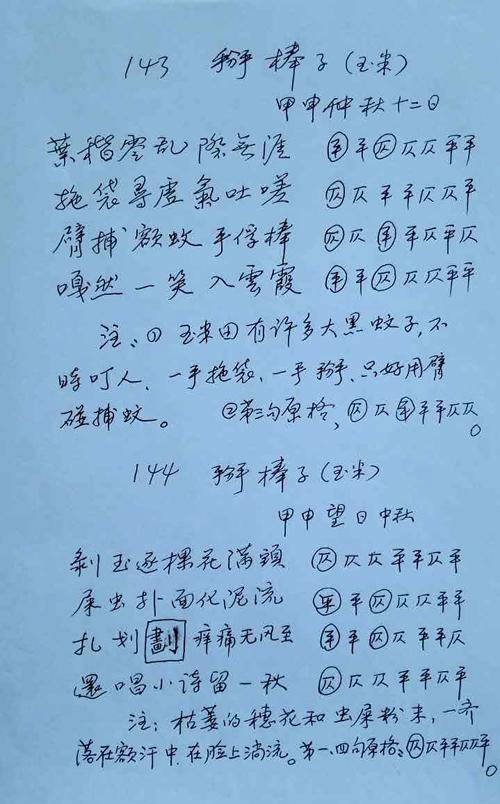 143 掰棒子(玉米)
甲申仲秋十二日
葉稭零乱際無涯 ㊄平㊄仄仄平平
拖袋尋虚氣吐嗟 仄仄平平仄仄平
臂捕額蚊手俘棒 仄仄平平仄平仄
嘎然一笑入雲霞 平平仄仄仄平平
注:① 玉米田有许多大黑蚊子,不
時叮人,一手拖袋,一手掰,只好用臂
碰捕蚊。 ②第三句原格,仄仄平平平仄仄。
144 掰棒子(玉米)
甲申望日中秋
剥玉逐棵花满頭 仄仄仄平平仄平
屎虫扑面化泥流 平平仄仄仄平平
扎划劃痒痛无风至 平平仄仄平平仄
還唱小诗留一秋 仄仄仄平平仄平
注:枯萎的穗花和虫屎粉末,一齐
落在額汗中,在脸上淌流。第一、四句原格:仄仄平平仄仄平。